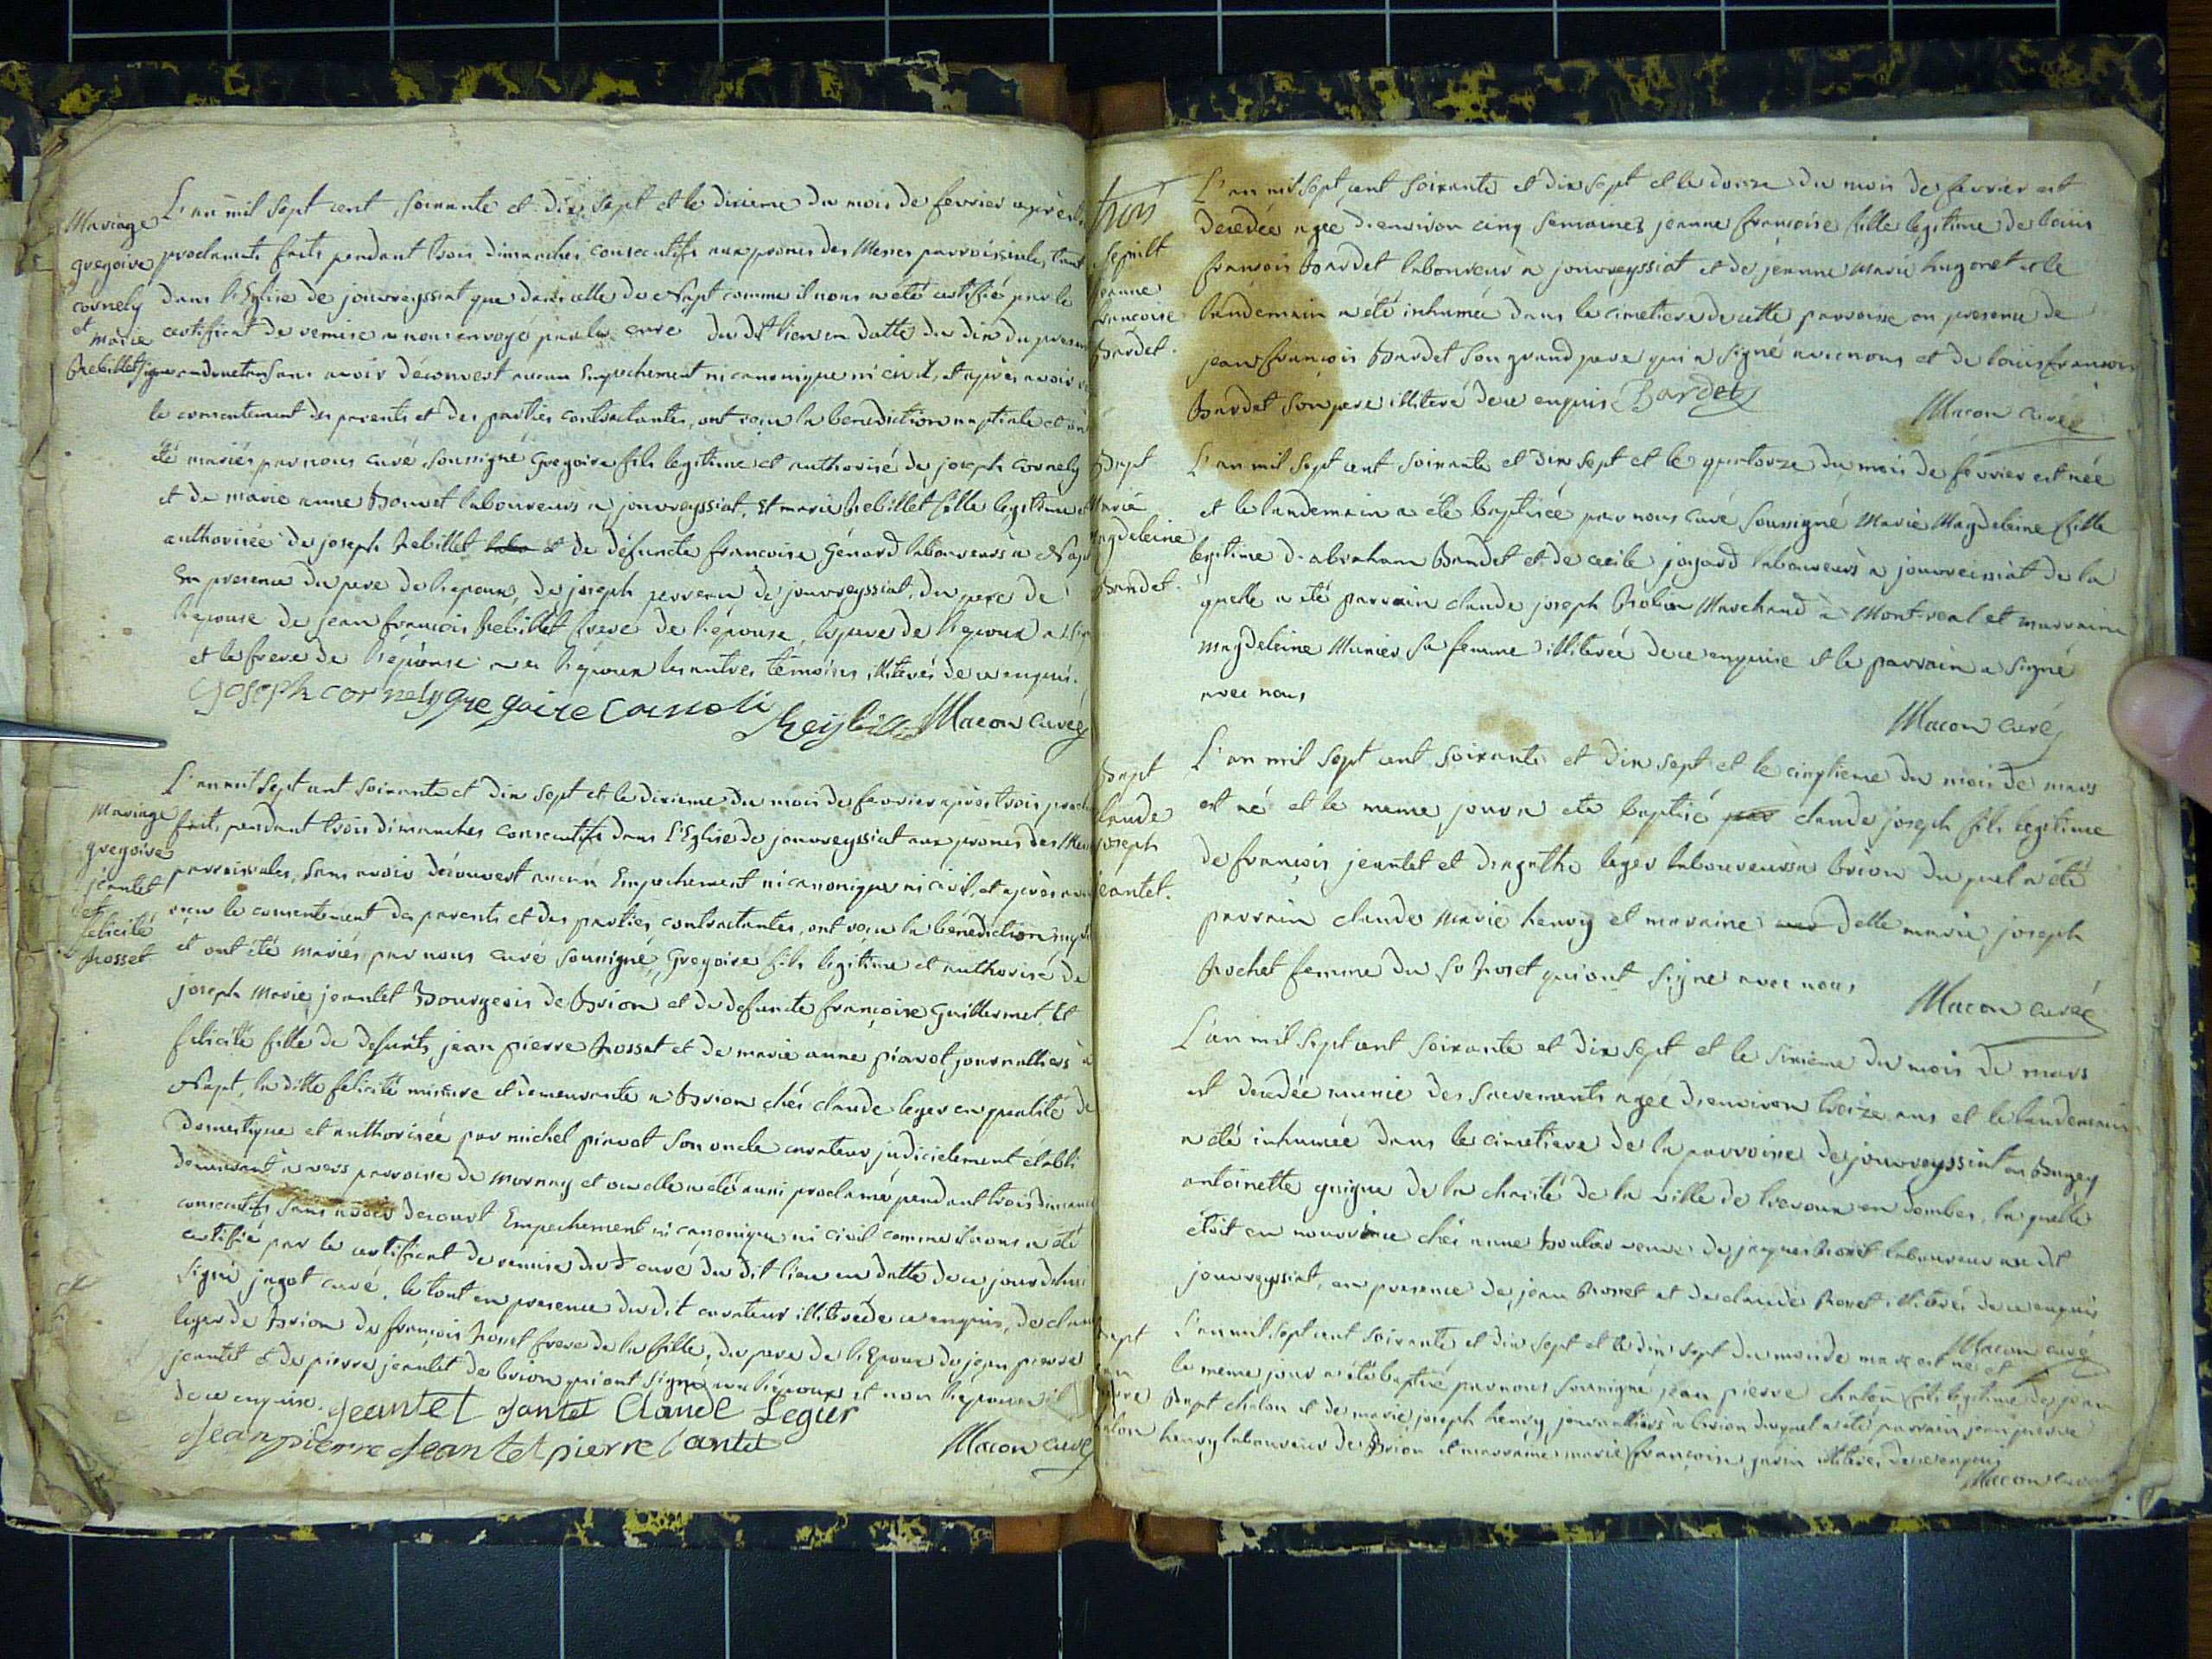 Mariage
gregoire
cornely
et
marie
Rebillet
L'an mil sept cent soixante et dix sept et le dixieme du mois de fevrier après les
proclamats faits pendant trois dimanches consecutifs aux prones des Messes parroissiales, tant
dans l'Eglise de jouvreyssiat que dans celle de Napt comme il nous a été certifié par le
certificat de remise a nous envoyé par le curé du dit lieu en datte du dix du present
signé sans avoir découvert aucun Empechement ni canonique ni civil, et après avoir
le consentement des parents et des parties contractantes, ont reçu la benediction nuptiale et ont
été mariés par nous curé soussigné gregoire fils legitime et authorisé de joseph cornely
et de marie anne Bouvet laboureurs a jouvreyssiat, Et marie Rebillet fille legitime et
authorisée de joseph Rebillet et de défuncte francoise Génard laboureurs a Napt
En presence du pere de l'epoux, de joseph perreau de jouvreyssiat, du pere de
l'epouse de jean françois Rebillet frere de l'épouse, le pere de l'epoux a signé
et le frere de l'épouse avec l'époux les autres témoins illiterés de ce enquis.
joseph cornely gregoire corneli
Reybillet Macon curé
Mariage
gregoire
jeantet
et
felicité
Rosset
L'an mil sept cent soixante et dix sept et le dixieme du mois de fevrier après trois procl
faits pendant trois dimanches consecutifs dans l'Eglise de jouvreyssiat aux prones des Messes
parroissiales, sans avoir découvert aucun Empechement ni canonique ni civil, et après avoir
reçu le consentement des parents et des parties contractantes, ont reçu la bénédiction nupt
et ont été mariés par nous curé soussigné, Gregoire fils legitime et authorisé de
joseph Marie jeantet Bourgeois de Brion et de defuncte françoise Guillermet, Et
felicité fille de defunts jean pierre Rosset et de marie anne piavot journalliers à
Napt, la ditte felicité mineure et demeurante a Brion chés claude leger en qualité de
domestique et authorisée par michel piavot son oncle curateur judicielement établi
demeurant a vers parroisse de Mornay et ou elle a été aussi proclamé pendant trois dimanc
consecutifs sans avoir decouvert Empechement ni canonique ni civil comme il nous a été
certifié par le certificat de remise du dt curé du dit lieu en datte de ce jourdhui
signé jagot curé, le tout en presence du dit curateur illiteré de ce enquis, de claud
leger de Brion de françois Rosset frere de la fille, du pere de l'Epoux de jean pierre
jeantet et de pierre jeantet de brion qui ont signé avec l'époux et non l'épouse
de ce enquise. jeantet jantet Claude Legier
jean pierre jeantet pierre jantet Macon curé
trois
Sepult
jeanne
francoise
Bardet.
L'an mil sept cent soixante et dix sept et le douze du mois de fevrier est
decedée agée d'environ cinq semaines jeanne françoise fille legitime de louis
françois Bardet laboureur a jouvreyssiat et de jeanne marie hugonet et le
landemain a été inhumée dans le cimetiere de cette parroisse en presence de
jean françois Bardet son grand pere qui a signé avec nous et de louis françois
Bardet son pere illiteré de ce enquis Bardet
Macon curé
Bapt
Marie
Magdeleine
Bandet.
L'an mil sept cent soixante et dix sept et le quatorze du mois de février est née
et le landemain a été baptisée par nous curé soussigné Marie Magdeleine fille
legitime d'abraham Bandet et de cecile jagard laboureurs a jouvreissiat de la
quelle a été parrain claude joseph Robin Marchand à Mont-real et marraine
magdeleine Munier sa femme illiterée de ce enquise et le parrain a signé
avec nous
Macon curé
Bapt
claude
joseph
jeantet.
L'an mil sept cent soixante et dix sept et le cinqtieme du mois de mars
est né et le meme jour a eté baptisé claude joseph fils legitime
de françois jeantet et d'agathe leger laboureurs a brion du quel a été
parrain claude Marie henry et marraine delle marie joseph
Rochet femme du sr Roset qui ont signé avec nous
Macon curé
L'an mil sept cent soixante et dix sept et le sixieme du mois de mars
est decedée munie des sacrements agée d'environ treize ans et le landemain
a été inhumée dans le cimetiere de la parroisse de jouvreyssiat en Bugey
antoinette guigue de la charité de la ville de trevoux en dombes, la quelle
étoit en nourrice chés anne Boulier veuve de jacques Rosset laboureur au dt
jouvreyssiat, en presence de jean Rosset et de claude Roset illiterés de ce enquis
Macon curé
bapt
jean
pierre
chalon
L'an mil sept cent soixante et dix sept et le dix sept du mois de mars est né et
le meme jour a été baptisé par nous soussigné jean pierre chalon fils legitime de jean
Bapt chalon et de marie joseph henry journalliers a brion duquel a été parrain jean pierre
henry laboureur de Brion et marraine marie françoise illiterés de ce enquis
Macon curé